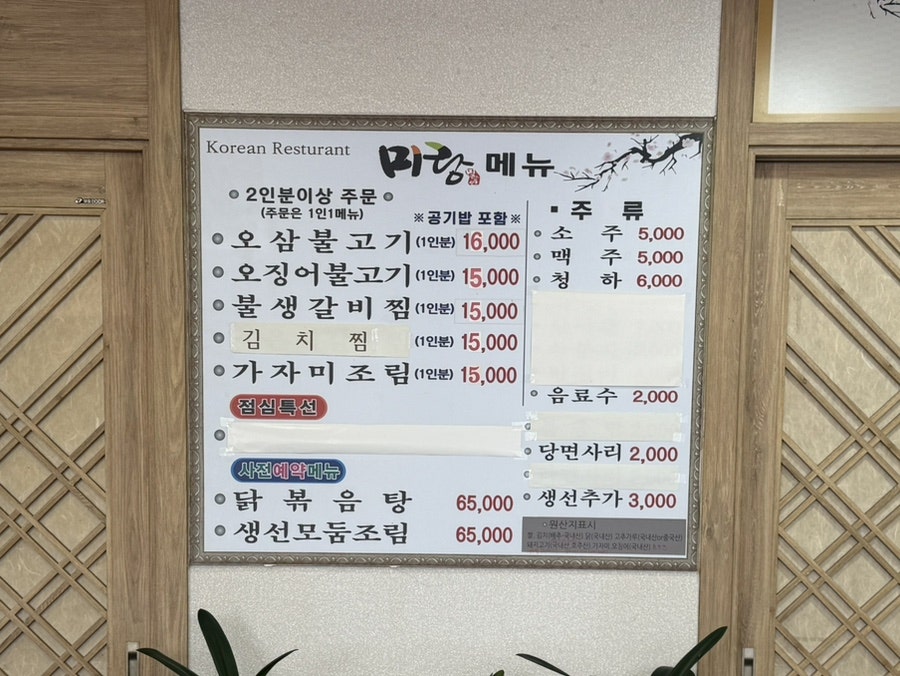 Korean Resturant
미랑 메뉴
2인분이상 주문
(주문은 1인1메뉴)
※공기밥 포함※
오삼불고기 (1인분) 16,000
오징어불고기 (1인분) 15,000
불생갈비찜 (1인분) 15,000
김치찜 (1인분) 15,000
가자미조림 (1인분) 15,000
점심특선
사전예약메뉴
닭볶음탕 65,000
생선모둠조림 65,000
주 류
소 주 5,000
맥 주 5,000
청 하 6,000
음료수 2,000
당면사리 2,000
생선추가 3,000
원산지표시
쌀, 김치(배추-국내산) 닭(국내산) 고추가루(국내산or중국산)
돼지고기(국내산,호주산) 가자미,오징어(국내산)